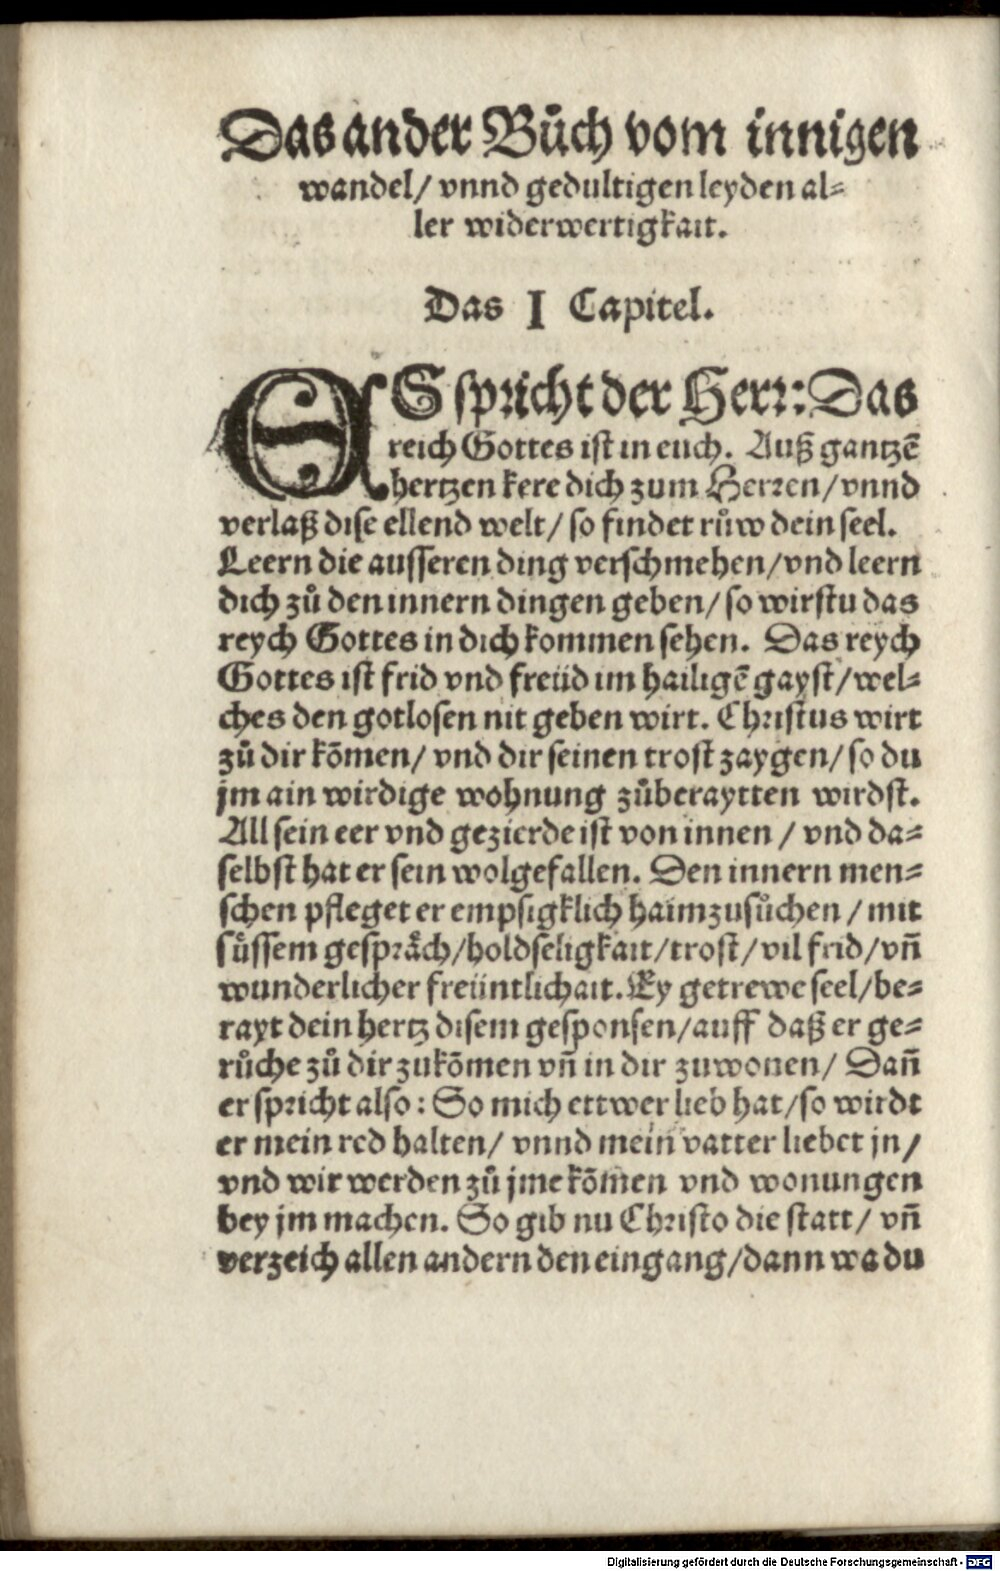 Das ander Bůch vom innigen
wandel/ vnnd gedultigen leyden al=
ler widerwertigkait.
Das I Capitel.
ES spricht der Herr: Das
reich Gottes ist in euch. Auß gantzẽ
hertzen kere dich zum Herren/ vnnd
verlaß dise ellend welt/ so findet růw dein seel.
Leern die ausseren ding verschmehen/ vnd leern
dich zů den innern dingen geben/ so wirstu das
reych Gottes in dich kommen sehen. Das reych
Gottes ist frid vnd freüd im hailigẽ gayst/ wel=
ches den gotlosen nit geben wirt. Christus wirt
zů dir kõmen/ vnd dir seinen trost zaygen/ so du
jm ain wirdige wohnung zůberaytten wirdst.
All sein eer vnd gezierde ist von innen / vnd da=
selbst hat er sein wolgefallen. Den innern men=
schen pfleget er empsigklich haimzusůchen / mit
sůssem gespräch/ holdseligkait/ trost/ vil frid/ vñ
wunderlicher freüntlichait. Ey getrewe seel/ be=
rayt dein hertz disem gesponsen/ auff daß er ge=
růche zů dir zukõmen vñ in dir zuwonen/ Dañ
er spricht also: So mich ettwer lieb hat/ so wirdt
er mein red halten/ vnnd mein vatter liebet jn/
vnd wir werden zů jme kõmen vnd wonungen
bey jm machen. So gib nu Christo die statt/ vñ
verzeich allen andern den eingang/ dann wa du
Digitalisierung gefördert durch die Deutsche Forschungsgemeinschaft - DFG